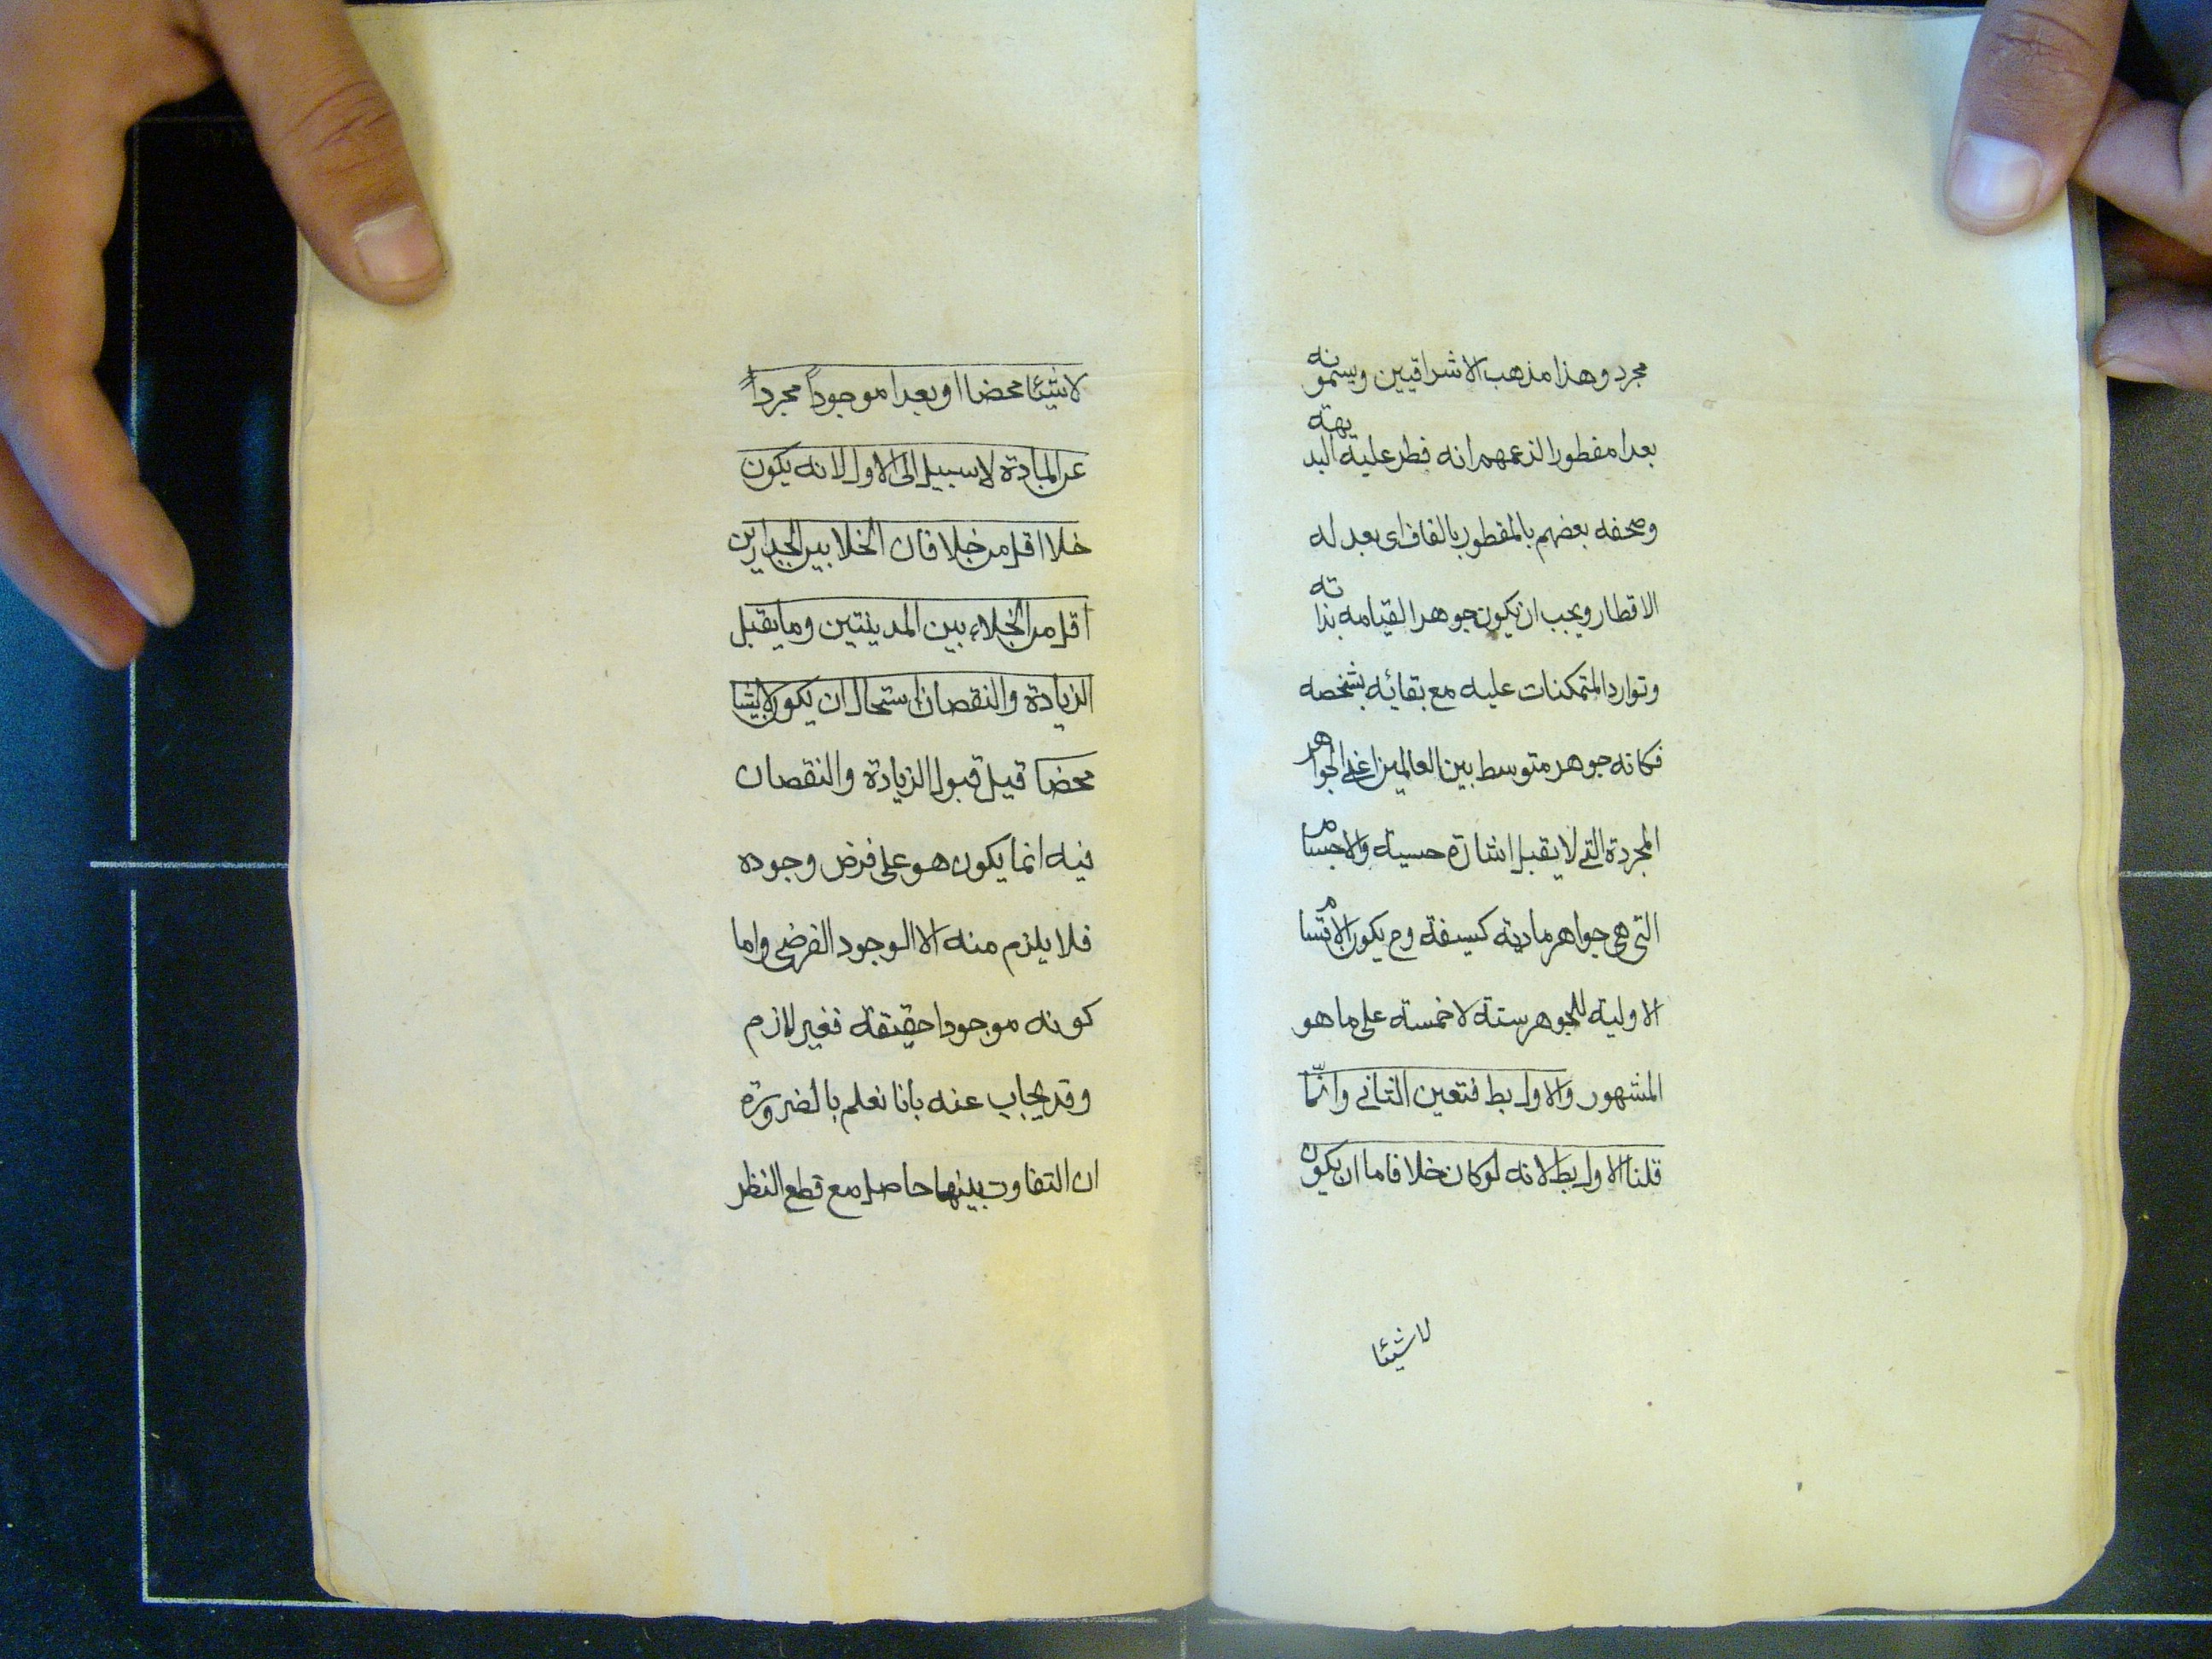 مجرد وهذا مذهب الاشراقيين ويسمونه
بعدا مفطورا لزعمهم انه فطر عليه البديهة
وصحفه بعضهم بالمقطور بالقاف اى بعد له
الاقطار ويجب ان يكون جوهرا لقيامه بذاته
وتوارد المتمكنات عليه مع بقائه بشخصه
فكانه جوهر متوسط بين العالمين اعنى الجواهر
المجردة التى لا يقبل اشارة حسية والاجسام
التى هى جواهر مادية كسيفة وح يكون الاقسام
الاولية للجوهر ستة لا خمسة على ما هو
المشهور والاول بط فتعين الثانى وانّما
قلنا الاول بط لانه لو كان خلا فاما ان يكون
لا شيئا
لا شيئا محضا او بعدا موجوداً مجرداً
عن المادة لا سبيل الى الاول لانه يكون
خلا اقل من خلا فان الخلا بين الجدارين
اقل من الخلاء بين المدينتين وما يقبل
الزيادة والنقصان استحال ان يكون لا شيئا
محضا قيل قبول الزيادة والنقصان
فيه انما يكون هو على فرض وجوده
فلا يلزم منه الا الوجود الفرضى واما
كونه موجودا حقيقة فغير لازم
وقد يجاب عنه بانا نعلم بالضرورة
ان التفاوت بينهما حاصل مع قطع النظر